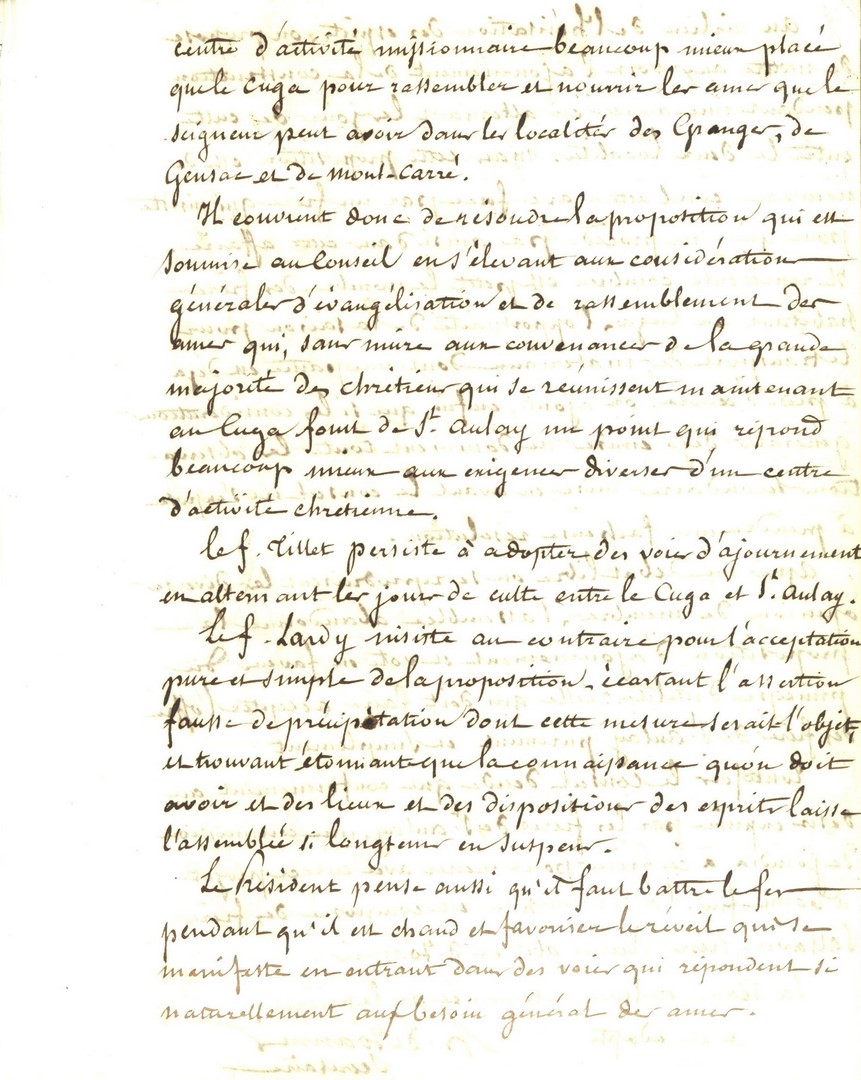 centre d'activité missionnaire beaucoup mieux placé
que le Cuga pour rassembler et nourrir les ames que le
seigneur peut avoir dans les localités des Granges, de
Gensac et de Mont-Carré.
Il convient donc de résoudre la proposition qui est
soumise au Conseil en s'élevant aux considérations
générales d'évangélisation et de rassemblement des
ames qui, sans nuire aux convenances de la grande
majorité des chrétiens qui se réunissent maintenant
au Cuga font de St. Aulay un point qui répond
beaucoup mieux aux exigences diverses d'un centre
d'activité chrétienne.
Le f. Tillet persiste à adopter des voies d'ajournement
en alternant les jours de culte entre le Cuga et St. Aulay.
Le f. Lardy insiste au contraire pour l'acceptation
pure et simple de la proposition, écartant l'assertion
fausse de précipitation dont cette mesure serait l'objet,
et trouvant étonnant que la connaissance qu'on doit
avoir et des lieux et des dispositions des esprits laisse
l'assemblée si longtems en suspens.
Le Président pense aussi qu'il faut battre le fer
pendant qu'il est chaud et favoriser le réveil qui se
manifeste en entrant dans des voies qui répondent si
naturellement aux besoin général des ames.